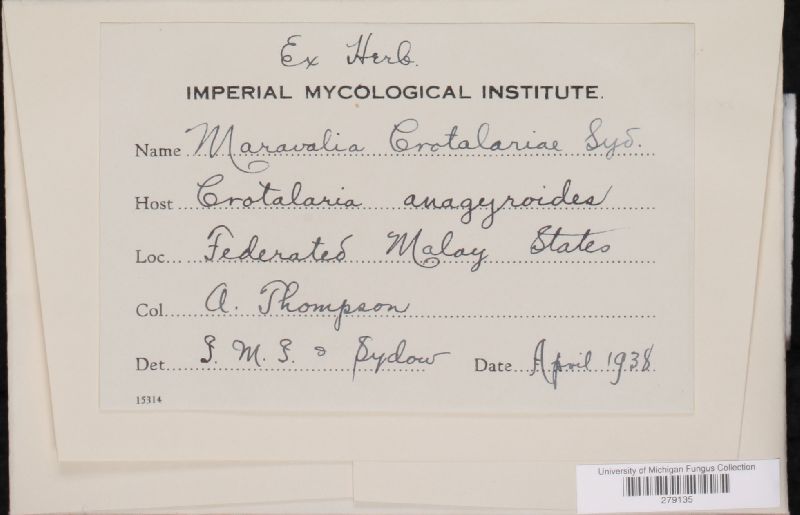 Ex Herb.
IMPERIAL MYCOLOGICAL INSTITUTE.
Name Maravalia Crotalariae Syd.
Host Crotalaria anagyroides
Loc. Federated Malay States
Col. A. Thompson
Det. I. M. I. & Sydow Date April 1938
15314
University of Michigan Fungus Collection
279135